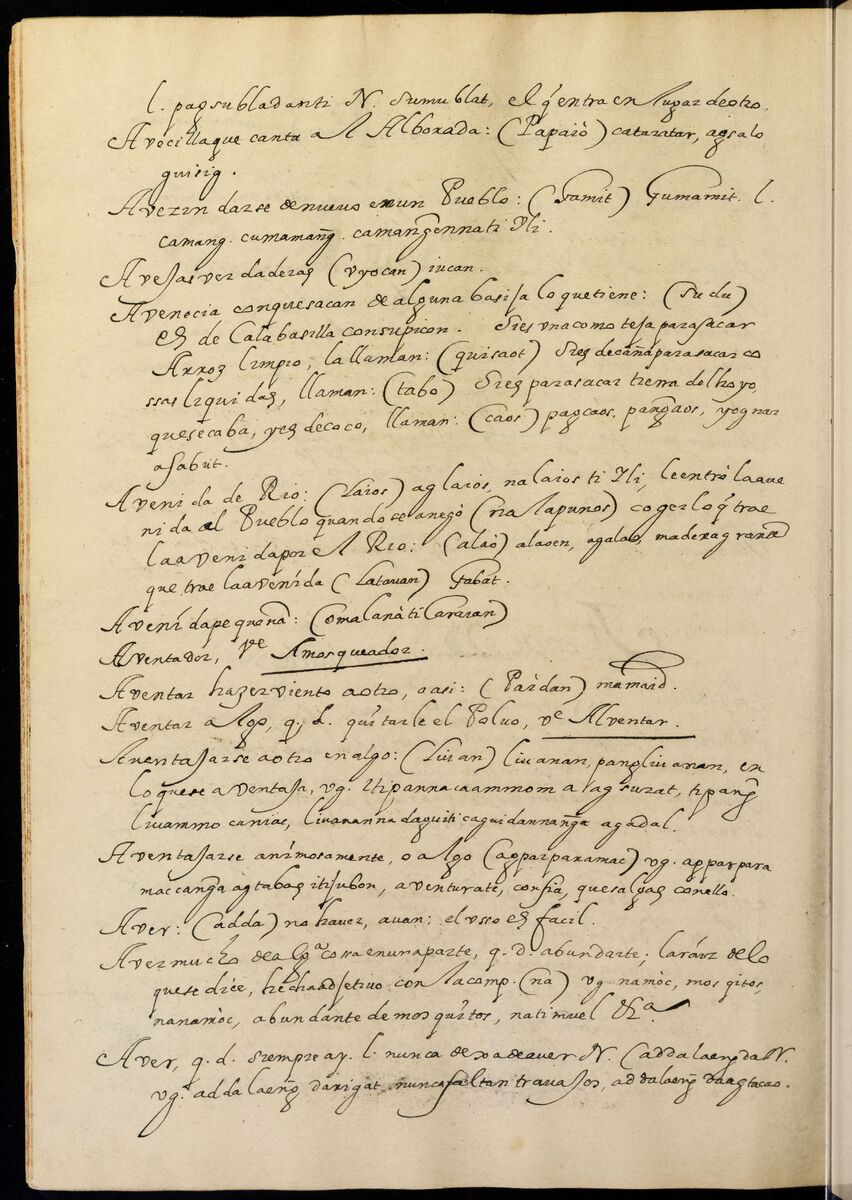 l. pagsubladanti N. sumublat, el q̃ entra en lugar de otro.
Avecilla que canta al Alborada: (Papaiò) cataratar, agsalo
guisig.
Avezindarse de nuevo en un Pueblo: (Gamit) Gumamit. l.
camang. cumamang̃. camang̃ennati Yli.
Avejas verdaderas (vyocan) iucan.
Avenecia con que sacan de alguna basija lo que tiene: (sudu)
es de Calabasilla con su picon. Si es vna como teja para sacar
Arroz limpio, la llaman: (quisaot) Si es de caña para sacar co
ssas liquidas, llaman: (tabo) Si es para sacar tierra del hoyo,
que se caba, y es de coco, llaman: (caos) pagcaos, pang̃aos, yognai
a sabut.
Avenida de Rio: (Laios) aglaios, nalaios ti Yli, le entrò la ave
nida al Pueblo quando se anegò (ria lapunos) coger lo q̃ trae
la avenida por el Rio: (alaò) alaoen, agalao, madera grande
que trae la avenida (Latauan) Gabat.
Avenída pequeña: (omalanàti Caraian)
Aventador, ve Amosqueador.
Aventar hazer viento a otro, o asi: (Paidan) mamaid.
Aventar algo, q. d. quitarle el Polvo, ve Alventar.
Aventajarse a otro en algo: (Liuan) liuanan, pang̃liuanan, en
lo que se aventaja, vg. Itipanna caammom a ag surat, ti pang̃
liuammo caniac, liuananna daguiti caguidannang̃a agadal.
Aventajarse anímosamente, o algo (agparparamac) vg. apparpara
maccang̃a agtabas iti subon, aventurate, confia, que salgas con ello.
Aver: (adda) no haver, auan: el vsso es facil.
Aver mucho de alga cosa en una parte, q. d. abundarte; la raiz de lo
que se dice, hecha adjetivo con la comp. (na) vg namòc, mosqitos,
nanamòc, abundante de mosquitos, natimuel &a.
Aver, q. d. siempre ay. l. nunca dexa de aver N. (addalaeng̃da N.
vg. addalaeng̃ darigat nunca faltan travajos, addalaeng̃ daagtacao.